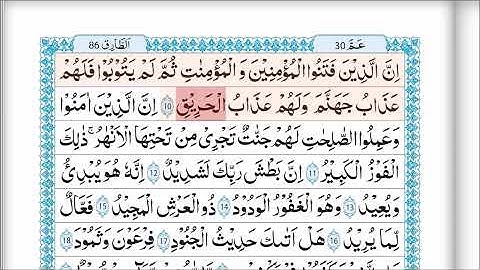 عَمَّ 30 الطَّارِق 86
اِنَّ الَّذِيْنَ فَتَنُوا الْمُؤْمِنِيْنَ وَ الْمُؤْمِنٰتِ ثُمَّ لَمْ يَتُوْبُوْا فَلَهُمْ
عَذَابُ جَهَنَّمَ وَلَهُمْ عَذَابُ الْحَرِيْقِ ﴿10﴾ اِنَّ الَّذِيْنَ اٰمَنُوْا
وَعَمِلُوا الصّٰلِحٰتِ لَهُمْ جَنّٰتٌ تَجْرِيْ مِنْ تَحْتِهَا الْاَنْهٰرُ ۚ ذٰلِكَ
الْفَوْزُ الْكَبِيْرُ ﴿11﴾ اِنَّ بَطْشَ رَبِّكَ لَشَدِيْدٌ ﴿12﴾ اِنَّهٗ هُوَ يُبْدِئُ
وَيُعِيْدُ ﴿13﴾ وَهُوَ الْغَفُوْرُ الْوَدُوْدُ ﴿14﴾ ذُو الْعَرْشِ الْمَجِيْدُ ﴿15﴾ فَعَّالٌ
لِّمَا يُرِيْدُ ﴿16﴾ هَلْ اَتٰىكَ حَدِيْثُ الْجُنُوْدِ ﴿17﴾ فِرْعَوْنَ وَثَمُوْدَ ﴿18﴾